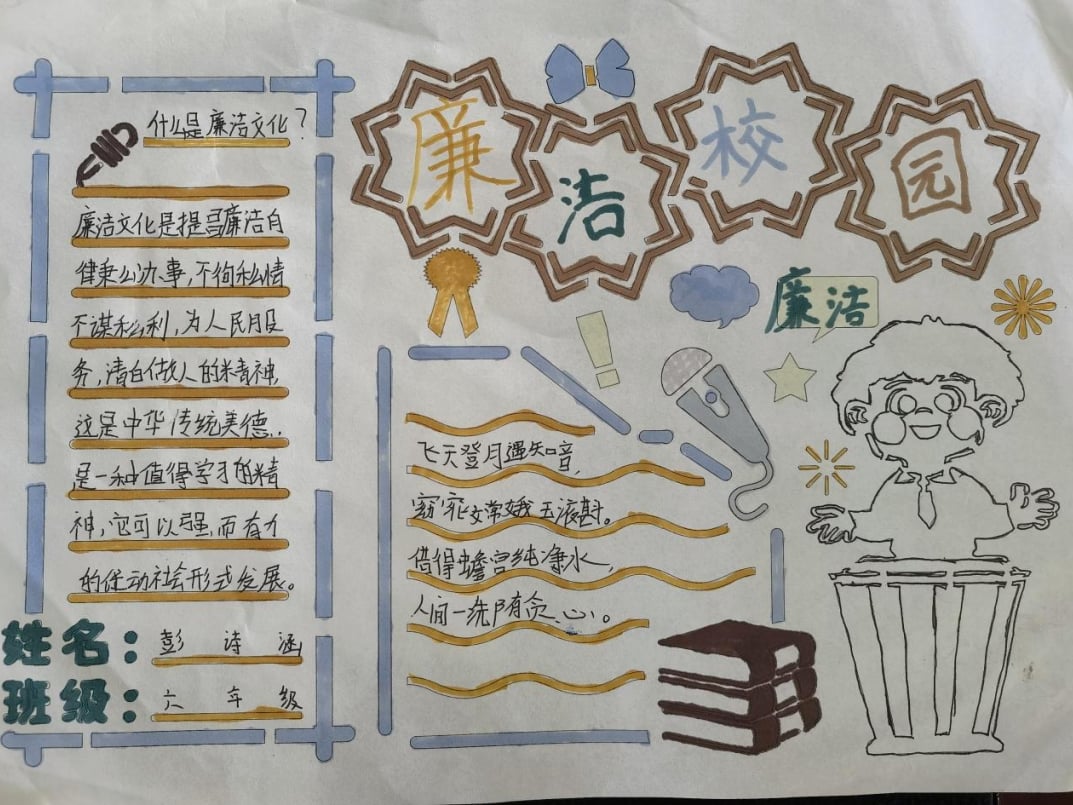 廉洁校园
廉洁
什么是廉洁文化?
廉洁文化是提写廉洁自
律秉公办事,不徇私情
不谋私利,为人民服
务,清白做人的精神,
这是中华传统美德.
是一种值得学习的精
神,它可以强而有力
的促动社会形式发展。
姓名:彭诗涵
班级:六年级
飞天登月遇知音,
窈窕文嫦娥玉液斟。
借得蟾宫纯净水,
人间一洗所有贪心。